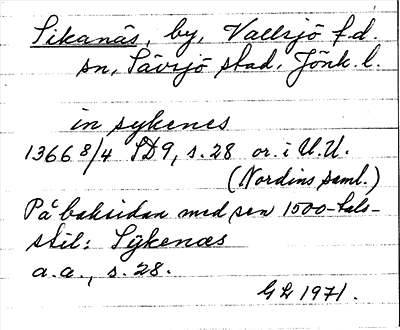 Sikanäs, by, Vallsjö f.d.
sn, Sävsjö stad. Jönk. l.
in sykenes
1366 8/4 SD9, s. 28 or. i U.U.
(Nordins saml.)
På baksidan med sen 1500-tals-
stil: Sÿkenæs
a.a., s. 28.
GL 1971.